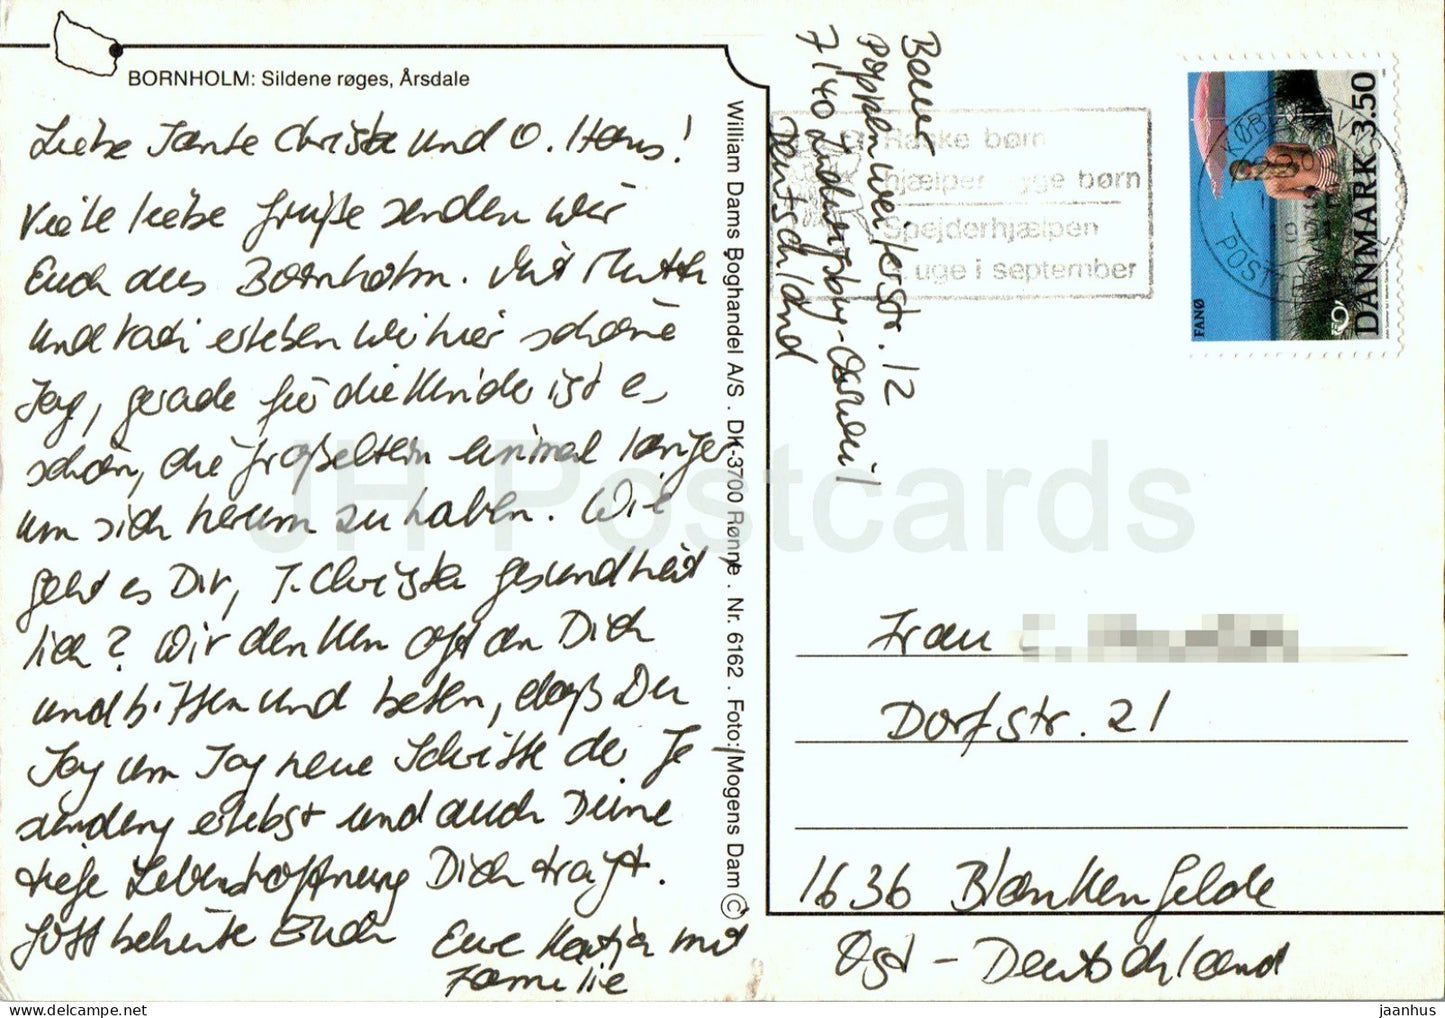 BORNHOLM: Sildene røges, Årsdale
Liebe Tante Christa und O. Hans!
Viele liebe Grüße senden wir
Euch aus Bornholm. Mit Mutti
und Vati erleben wir hier schöne
Tag, gerade für die Kinder ist es
schön, die Großeltern einmal länger
um sich herum zu haben. Wie
geht es Dir, T. Christa gesundheit
lich? Wir denken oft an Dich
und bitten und beten, daß Du
Tag um Tag neue Schritte der Ge
sundung erlebst und auch Deine
tiefe Lebenshoffnung Dich trägt.
Gott behüte Euch
Eure Katja mit
Familie
William Dams Boghandel A/S . DK-3700 Rønne . Nr. 6162 . Foto: Mogens Dam ©
Bauer
Poppenweilerstr. 12
7140 Ludwigsburg-Oßweil
Deutschland
Raske børn
hjælper syge børn
Spejderhjælpen
uge i september
KØB
POST
1991
FANØ
DANMARK 3.50
Frau
Dorfstr. 21
1636 Blankenfelde
Ost - Deutschland
JH Postcards
jaanhus